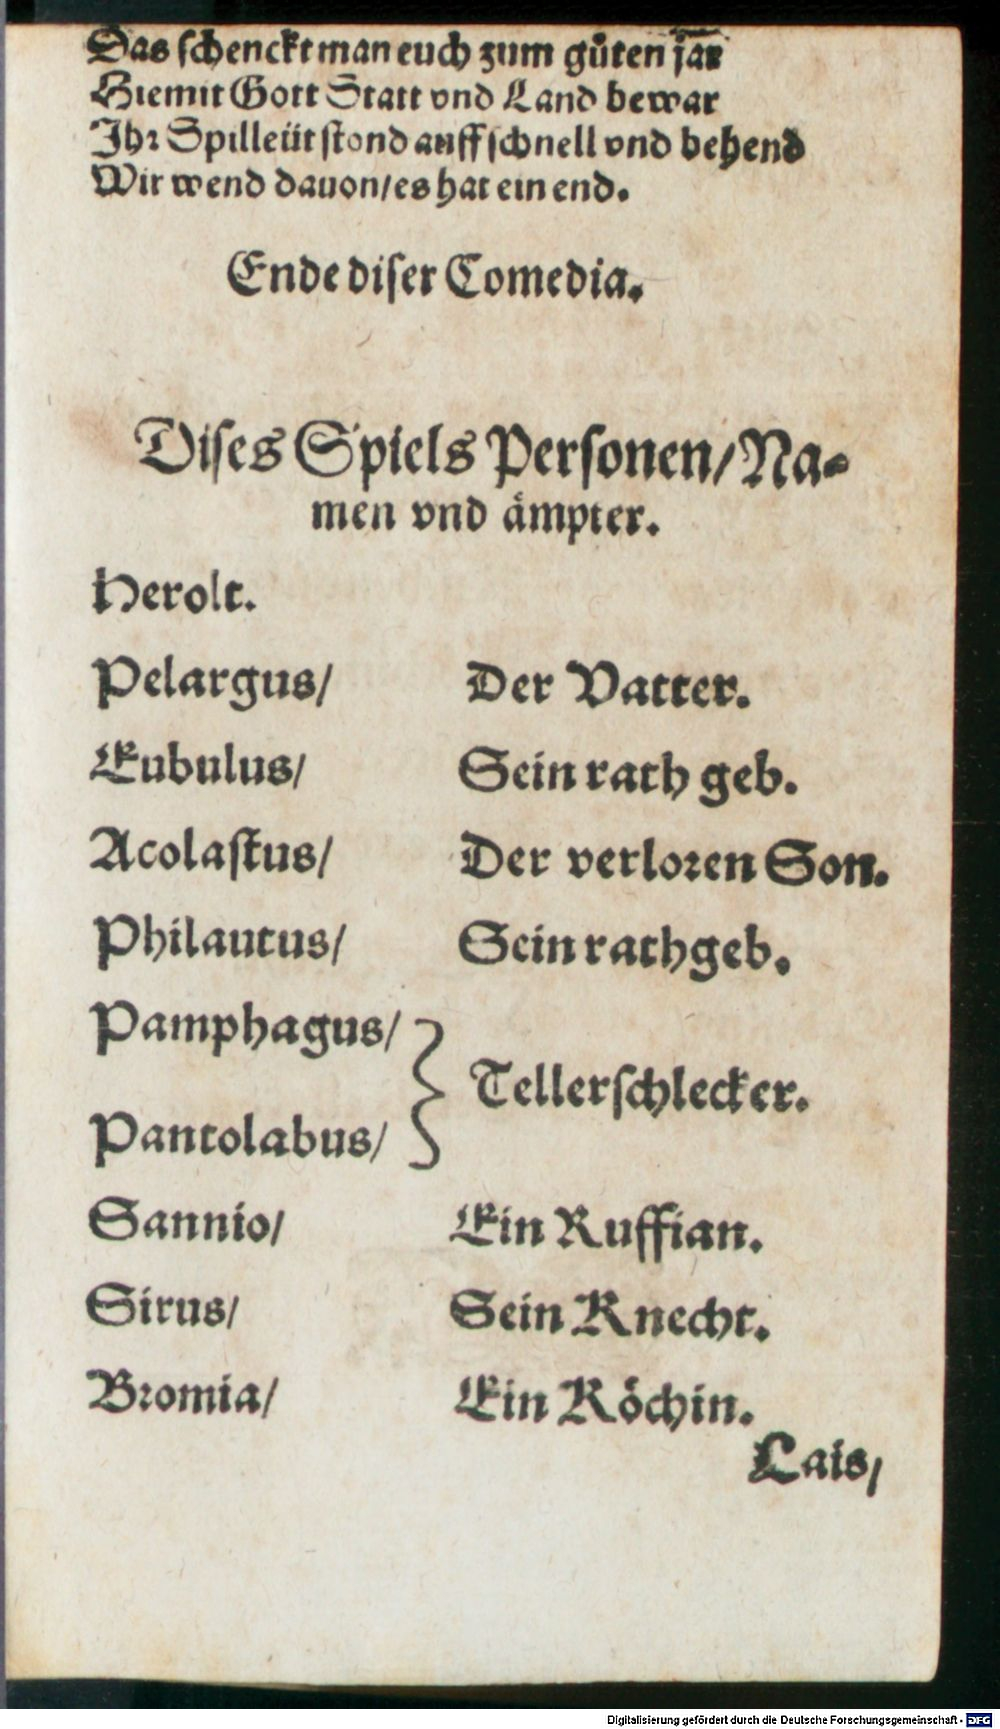 Das ſchenckt man euch zum gůten jar
Hiemit Gott Statt vnd Land bewar
Jhr Spilleüt ſtond auff ſchnell vnd behend
Wir wend dauon/ es hat ein end.
Ende diſer Comedia.
Diſes Spiels Perſonen/ Na-
men vnd ämpter.
Herolt.
Pelargus/ Der Vatter.
Eubulus/ Sein rath geb.
Acolaſtus/ Der verloren Son.
Philautus/ Sein rathgeb.
Pamphagus/
Tellerſchlecker.
Pantolabus/
Sannio/ Ein Ruffian.
Sirus/ Sein Knecht.
Bromia/ Ein Köchin.
Lais/
Digitalisierung gefördert durch die Deutsche Forschungsgemeinschaft - DFG